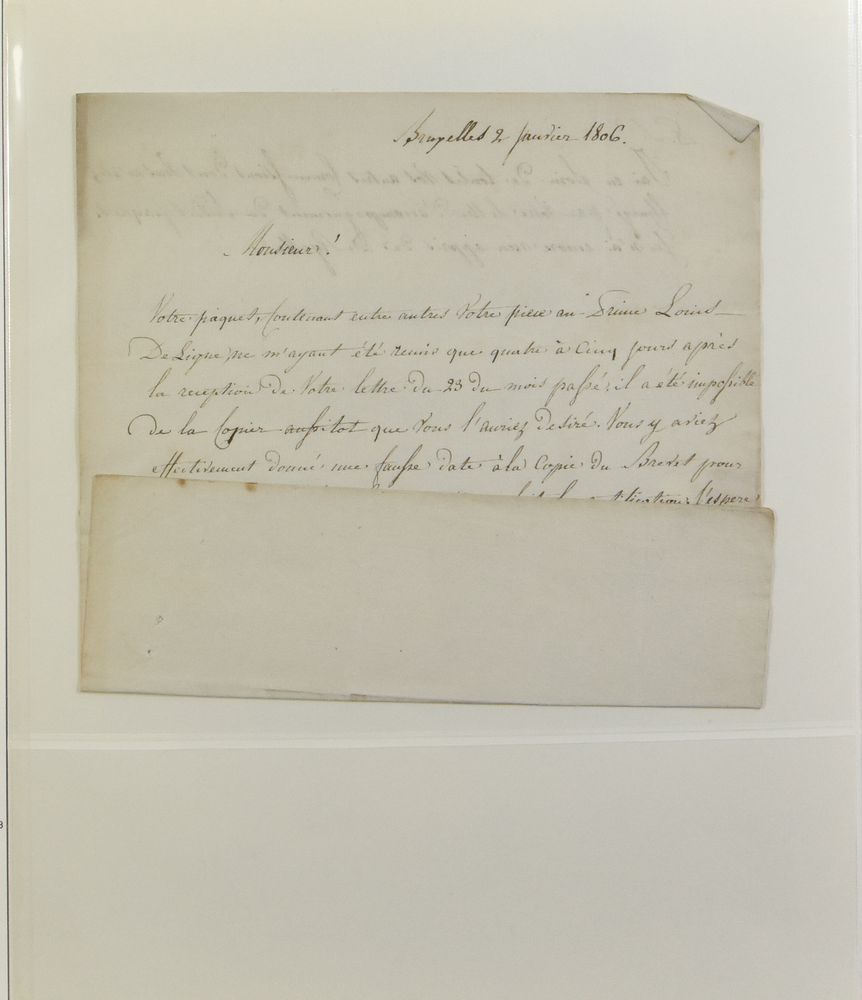 Bruxelles 2 Janvier 1806.
Monsieur!
Votre paquet, Contenant entre autres Votre piece au Prince Louis
De Ligne, ne m'ayant été remis que quatre à Cinq jours après
la reception de Votre lettre du 23 du mois passé, il a été impossible
de la Copier aussitot que Vous l'auriez desiré. Vous y aviez
effectivement donné une fausse date à la Copie du Brevet pour
l'espere